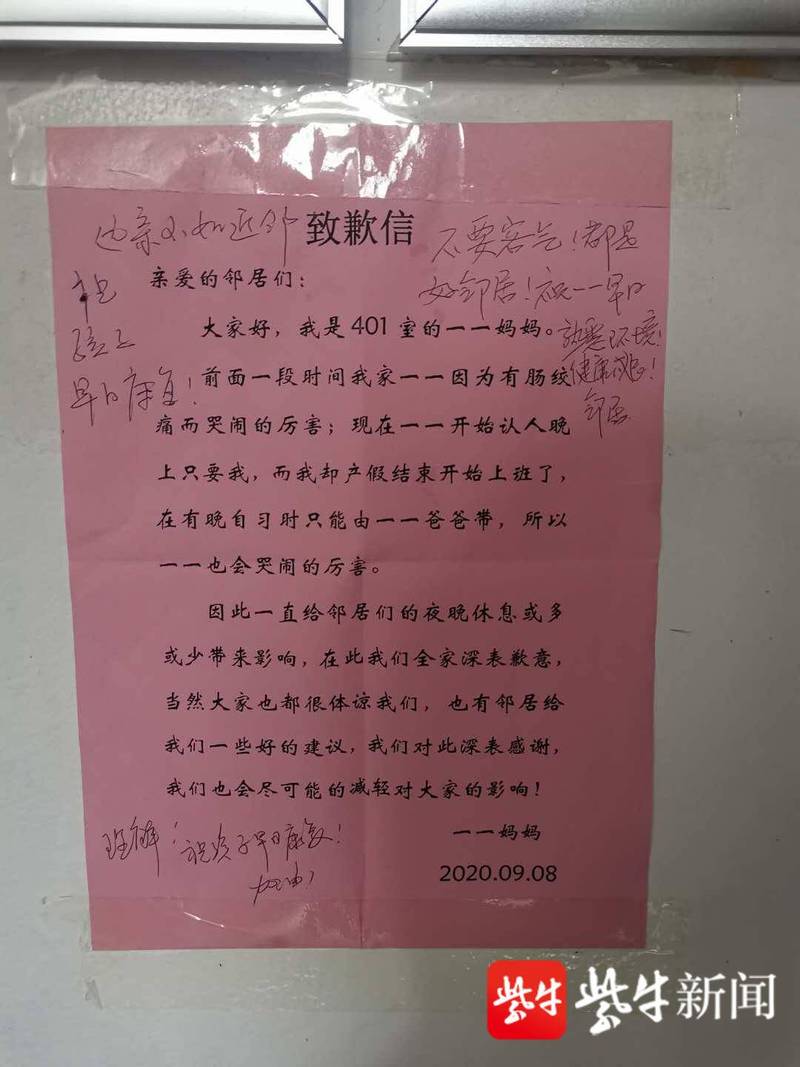 远亲不如近邻
致歉信
不要客气！都是
好邻居！祝一一早日
熟悉环境！
健康成长！
邻居
祝
宝宝
早日康复！
亲爱的邻居们：
大家好，我是401室的一一妈妈。
前面一段时间我家一一因为有肠绞
痛而哭闹的厉害；现在一一开始认人晚
上只要我，而我却产假结束开始上班了，
在有晚自习时只能由一一爸爸带，所以
一一也会哭闹的厉害。
因此一直给邻居们的夜晚休息或多
或少带来影响，在此我们全家深表歉意，
当然大家也都很体谅我们，也有邻居给
我们一些好的建议，我们对此深表感谢，
我们也会尽可能的减轻对大家的影响！
一一妈妈
2020.09.08
理解！祝孩子早日康复！
加油！
紫牛 紫牛新闻